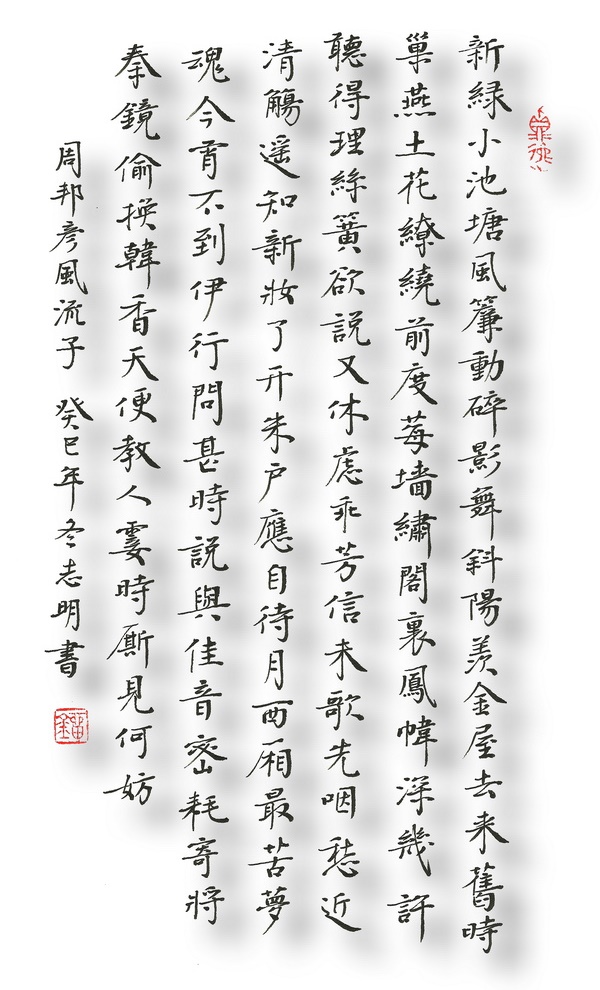 新緑小池塘風簾動碎影舞斜陽羨金屋去来舊時
巢燕土花繚繞前度莓墻繡閣裏鳳幃深幾許
聽得理絲簧欲説又休慮乖芳信未歌先咽愁近
清觴遥知新妝了开朱户應自待月西厢最苦夢
魂今宵不到伊行問甚時説與佳音密耗寄將
秦鏡偷换韓香天便教人霎時厮見何妨
周邦彦風流子 癸巳年冬志明書